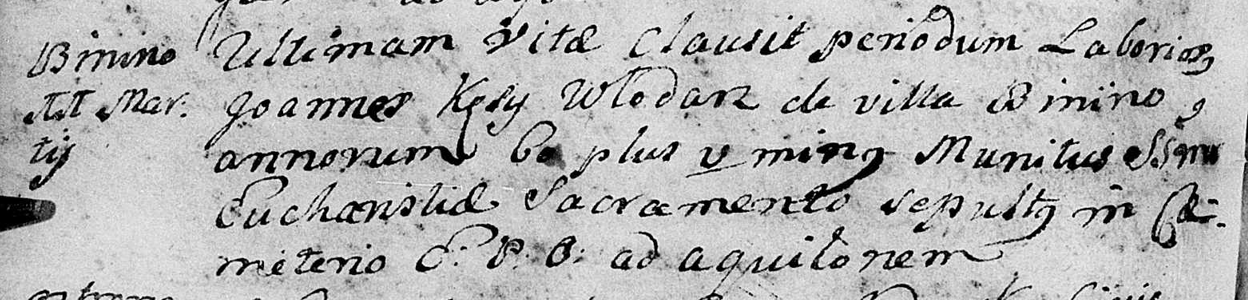 Binino Ultimam Vitæ Clausit periodum Laborios9
Mar. Joannes Kęsy Wlodarz de villa Binino
tij annorum 60 plus v min9 Munitus SSmo
Eucharistiæ Sacramento sepult9 in Cæ-
meterio E. P. B. ad aquilonem